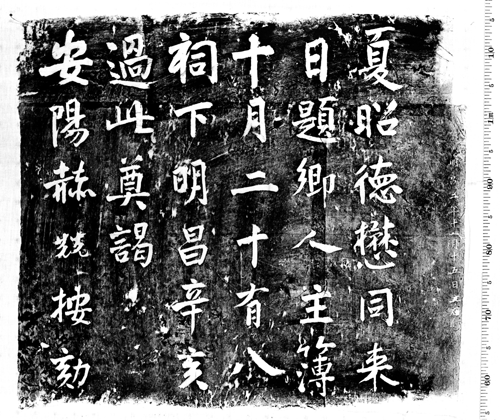 安陽赫兟按劾
過此奠謁
祠下明昌辛亥
十月二十有八
日題鄉人主簿
夏昭德懋同来